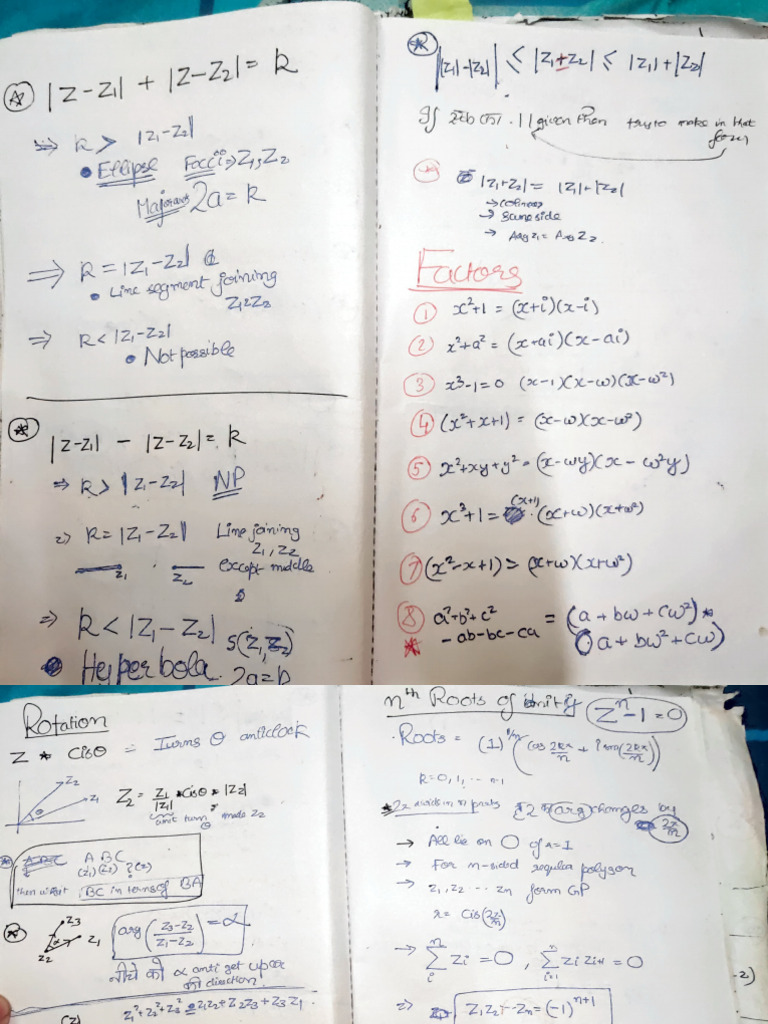 |z-z₁| + |z-z₂| = k
⇒ k > |z₁-z₂|
• Ellipse Foccii ⇒ z₁, z₂
Major axis 2a = k
⇒ k = |z₁-z₂|
• Line segment joining
z₁ z₂
⇒ k < |z₁-z₂|
• Not possible
|z-z₁| - |z-z₂| = k
⇒ k > |z₁-z₂| NP
⇒ k = |z₁-z₂| Line joining
z₁, z₂
z₁ z₂ except middle
⇒ k < |z₁-z₂| S(z₁, z₂)
• Hyperbola 2a = k
||z₁|-|z₂|| ≤ |z₁±z₂| ≤ |z₁|+|z₂|
If given then try to make in that
form
|z₁+z₂| = |z₁|+|z₂|
→ Same side
→ Arg z₁ = Arg z₂
Factors
① x²+1 = (x+i)(x-i)
② x²+a² = (x+ai)(x-ai)
③ x³-1=0 (x-1)(x-ω)(x-ω²)
④ (x²+x+1) = (x-ω)(x-ω²)
⑤ x²+xy+y² = (x-ωy)(x-ω²y)
⑥ x³+1 = (x+1)·(x+ω)(x+ω²)
⑦ (x²-x+1) = (x+ω)(x+ω²)
⑧ a²+b²+c² = (a+bω+cω²)*
-ab-bc-ca (a+bω²+cω)
Rotation
z * cisθ = Turns θ anticlock
z₂ z₁ θ
z₂ = z₁/|z₁| * cisθ * |z₂|
unit turn θ mode z₂
A B C
(z₁) (z₂) ?(z)
then write BC in terms of BA
z₃ z₁ z₂ α
arg((z₃-z₂)/(z₁-z₂)) = α
नीचे को α anti get upar
की direction.
z₁²+z₂²+z₃² = z₁z₂+z₂z₃+z₃z₁.
nᵗʰ Roots of unity zⁿ-1=0
• Roots = (1)^(1/n) (cos 2kπ/n + i sin(2kπ/n))
k=0,1,...n-1
*2π divids in n parts & arg changes by
2π/n
→ All lie on O of r=1
→ For n-sided regular polygon
→ z₁, z₂ ... zₙ form GP
r = cis(2π/n)
→ Σ zᵢ = 0, Σ zᵢ zᵢ₊₁ = 0
⇒ z₁z₂...zₙ = (-1)ⁿ⁺¹
-2)